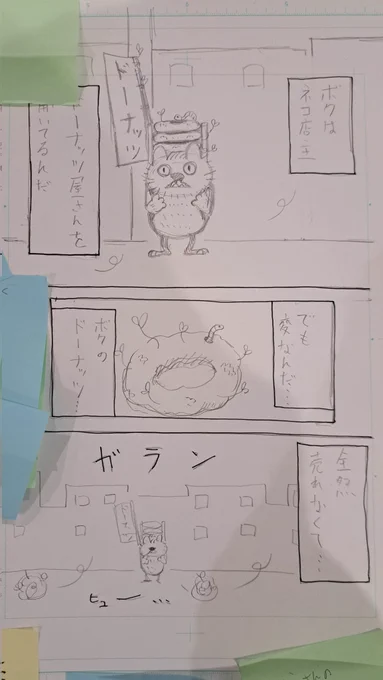 ボクは
ネコ店主
ドーナッツ
ドーナッツ屋さんを
開いてるんだ
でも
変なんだ…
ボクの
ドーナッツ…
全然
売れなくて…
ガラン
ヒュー…